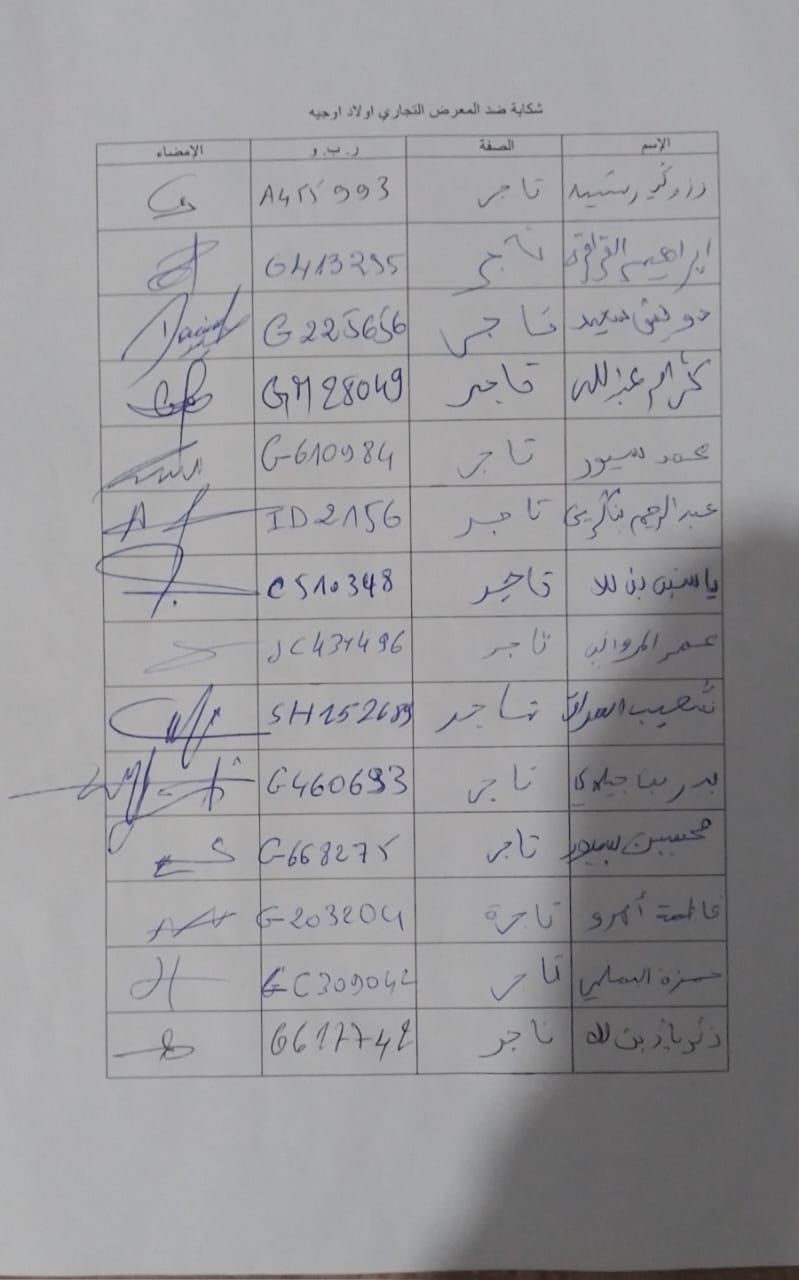 شكاية ضد المعرض التجاري اولاد اوجيه
الإسم الصفة ر.ب.و الإمضاء
رشيد تاجر A455993
ابراهيم القراقرة تاجر G413295
سعيد تاجر G225656 Daoud
عبد الله تاجر GM28049
محمد سيور تاجر G610984
عبد الرحيم تاجر ID2156
ياسين بن للا تاجر C510348
عمر المرواني تاجر
شعيب تاجر SH152689
بدر بناجيلالي تاجر G460693
محسين سيور تاجر G668275
فاطمة أمرو تاجرة G203204
حمزة السملي تاجر GC309042
بن للا تاجر G617742